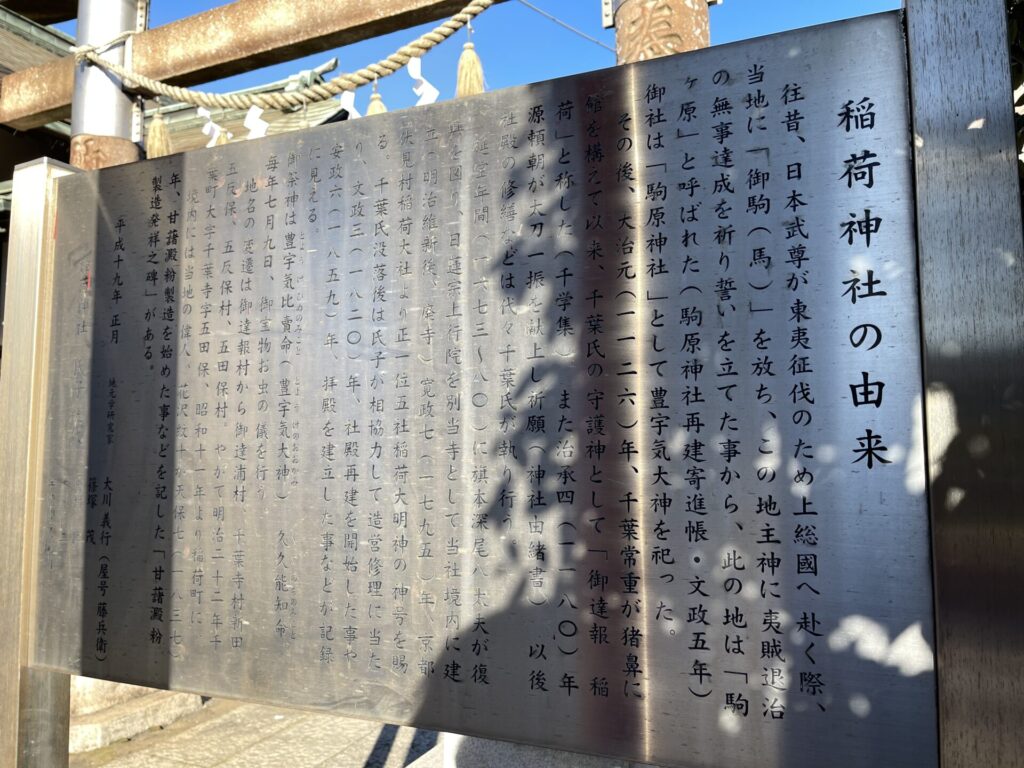 稲荷神社の由来
往昔、日本武尊が東夷征伐のため上総國へ赴く際、
当地に「御駒(馬)」を放ち、この地主神に夷賊退治
の無事達成を祈り誓いを立てた事から、此の地は「駒
ヶ原」と呼ばれた(駒原神社再建寄進帳・文政五年)
御社は「駒原神社」として豊宇気大神を祀った。
その後、大治元(一一二六)年、千葉常重が猪鼻に
館を構えて以来、千葉氏の守護神として「御達報 稲
荷」と称した(千学集)また治承四(一一八〇)年
源頼朝が太刀一振を献上し祈願(神社由緒書)以後
社殿の修繕などは代々千葉氏が執り行う。
延宝年間(一六七三~八〇)に旗本深尾八太夫が復
興を図り、日蓮宗上行院を別当寺として当社境内に建
立(明治維新後、廃寺)寛政七(一七九五)年 京都
伏見村稲荷大社より正一位五社稲荷大明神の神号を賜
る。千葉氏没落後は氏子が相協力して造営修理に当た
り、文政三(一八二〇)年、社殿再建を開始した事や
安政六(一八五九)年、拝殿を建立した事などが記録
に見える。
御祭神は豊宇気比賣命(豊宇気大神) 久久能知命
毎年七月九日、御宝物お虫の儀を行う
地名の変遷は御達報村から御達浦村 千葉寺村新田
五反保、五反保村、五田保村。やがて明治二十二年千
葉町大字千葉寺字五田保、昭和十一年より稲荷町に
境内には当地の偉人、花沢紋十が天保七(一八三七)
年、甘藷澱粉製造を始めた事などを記した「甘藷澱粉
製造発祥之碑」がある。
平成十九年 正月
地元史研究家 大川 義行(屋号 藤兵衛)
篠塚 茂